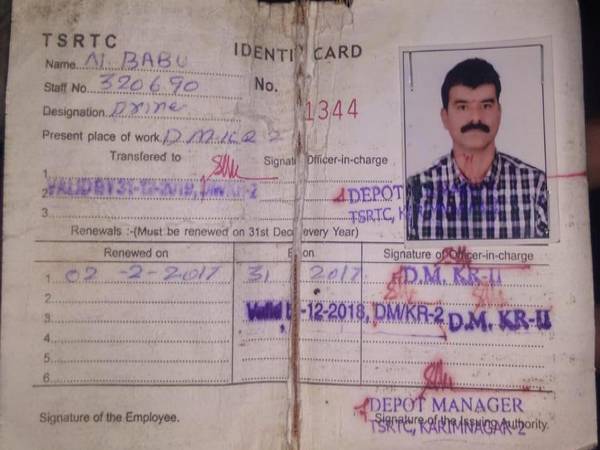 TSRTC IDENTI CARD
Name N. BABU
Staff No. 320690 No. 1344
Designation
Present place of work
Transfered to Signat Officer-in-charge
1.
2. VALID BY 31-12-2019, DM/KR-2
3.
DEPOT
TSRTC, KARIMNAGAR
Renewals :-(Must be renewed on 31st Dec every Year)
Renewed on E on Signature of Officer-in-charge
1. 02-2-2017 31 2017 D.M. KR-II
2.
3. Valid b -12-2018, DM/KR-2 D.M. KR-II
4.
5.
6.
DEPOT MANAGER
Signature of the Employee. Signature of the Issuing Authority.
TSRTC, KARIMNAGAR-2